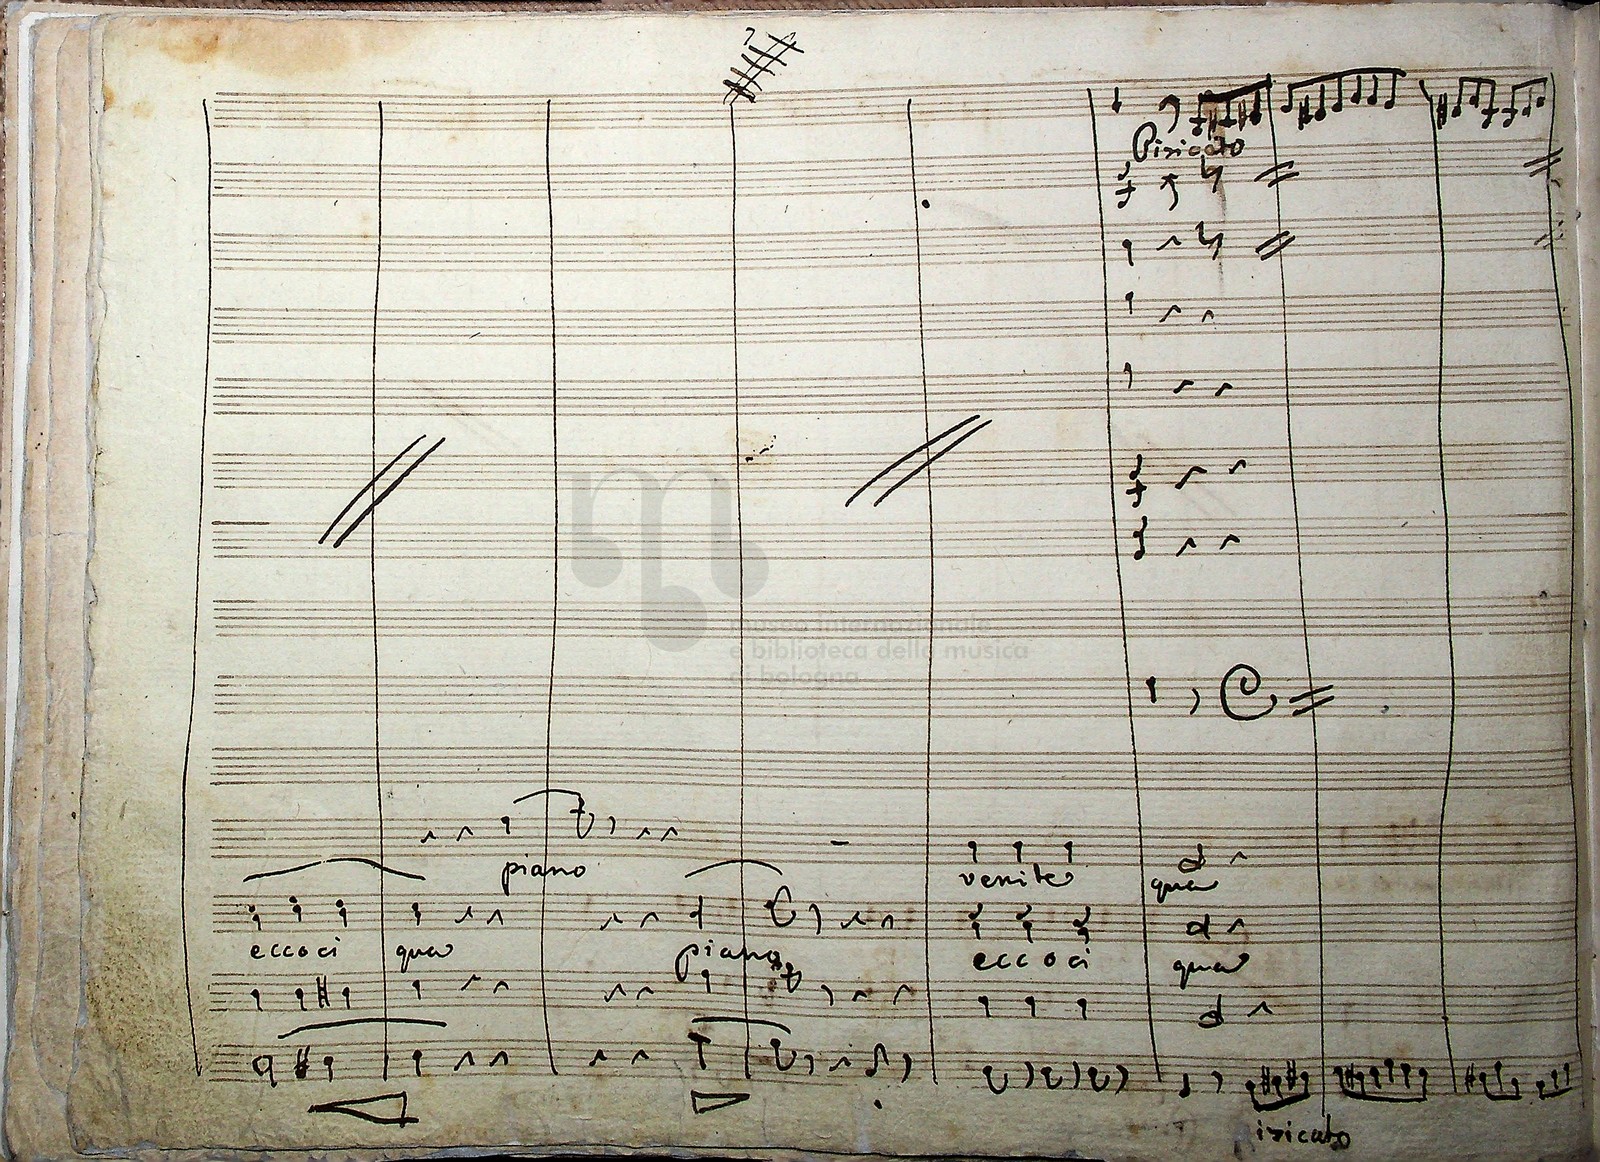 Pizicato
museo internazionale
e biblioteca della musica
di bologna
piano
venite
qua
eccoci qua
piano
eccoci
qua
izicato